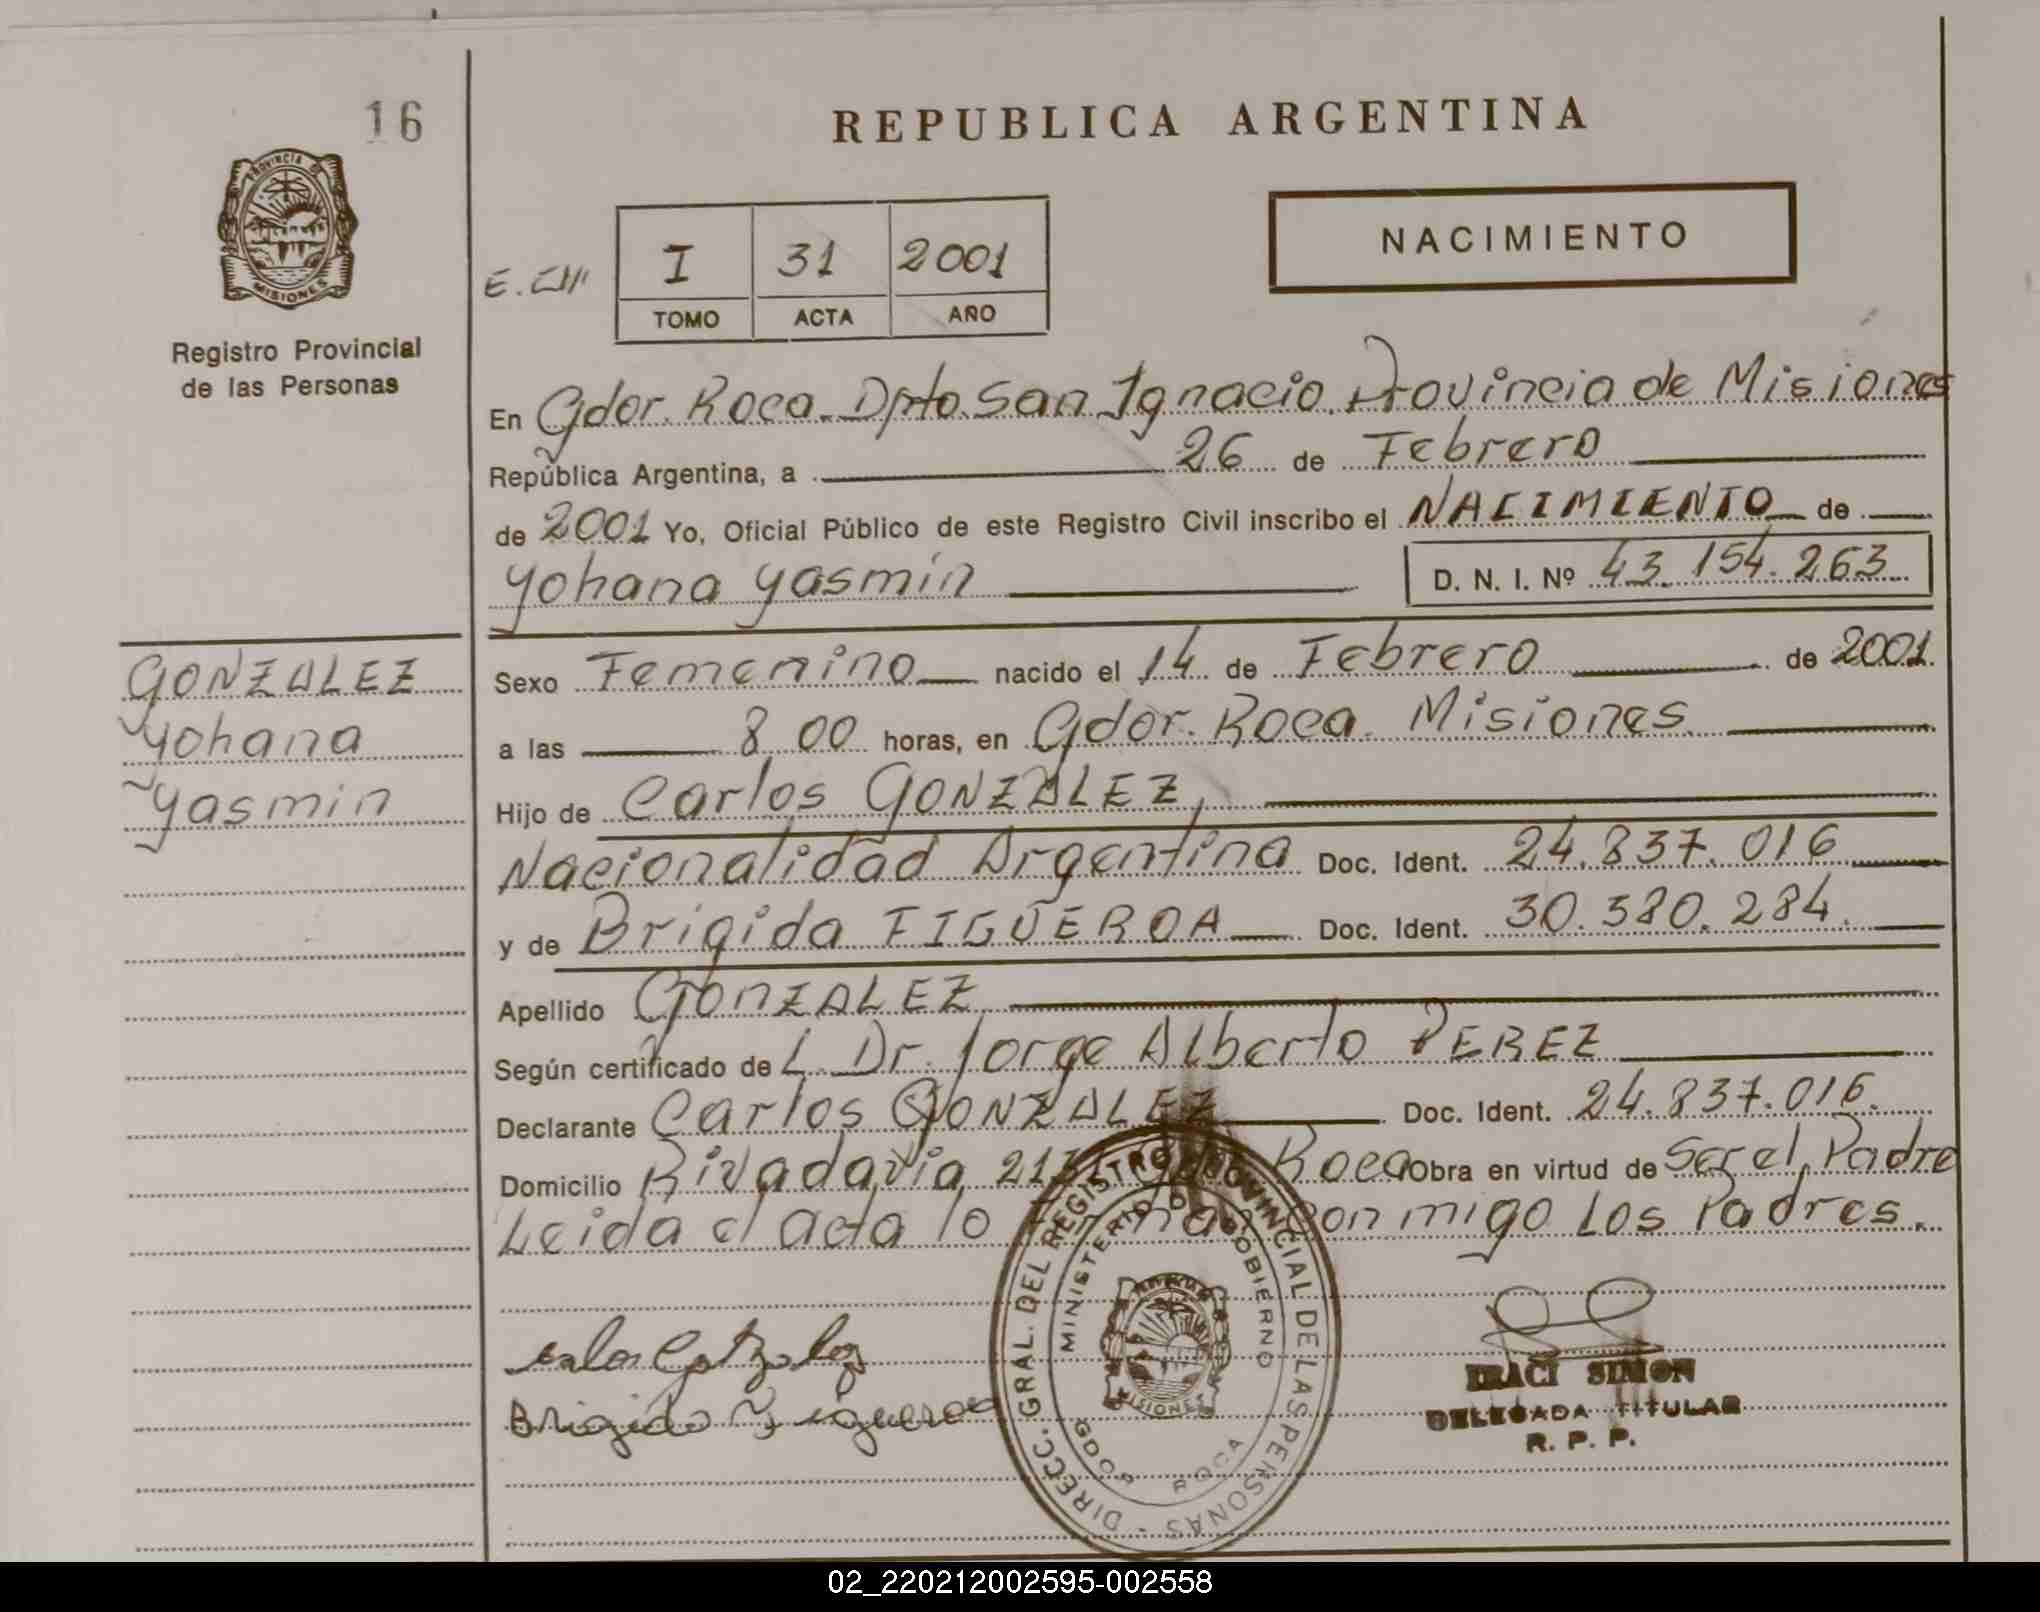 16
REPUBLICA ARGENTINA
PROVINCIA DE
MISIONES
Registro Provincial
de las Personas
I 31 2001
TOMO ACTA AÑO
NACIMIENTO
En Gdor. Roca. Dpto. San Ignacio. Provincia de Misiones
República Argentina, a 26 de Febrero
de 2001 Yo, Oficial Público de este Registro Civil inscribo el NACIMIENTO de
Yohana Yasmin D. N. I. Nº 43.154.263
GONZALEZ
Yohana
Yasmin
Sexo Femenino nacido el 14 de Febrero de 2001.
a las 8 00 horas, en Gdor. Roca. Misiones
Hijo de Carlos GONZALEZ,
Nacionalidad Argentina Doc. Ident. 24.837.016
y de Brigida FIGUEROA Doc. Ident. 30.380.284.
Apellido GONZALEZ
Según certificado de L. Dr. Jorge Alberto PEREZ
Declarante Carlos GONZALEZ Doc. Ident. 24.837.016.
Domicilio Rivadavia Roca Obra en virtud de Ser el Padre
Leida el acta lo firman conmigo Los Padres.
DIRECC. GRAL. DEL REGISTRO PROVINCIAL DE LAS PERSONAS -
MINISTERIO DE GOBIERNO
MISIONES
GDOR ROCA
Carlos Gonzalez
Brigida Figueroa
IRACI SIMON
DELEGADA TITULAR
R. P. P.
02_220212002595-002558